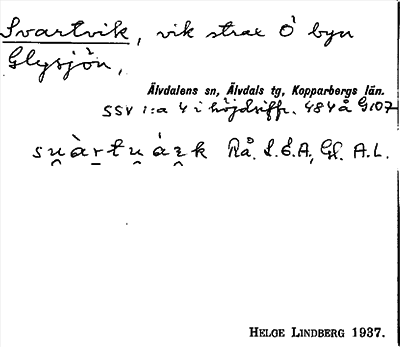 Svartvik, vik strax Ö byn
Glysjön,
Älvdalens sn, Älvdals tg, Kopparbergs län.
SSV 1:a 4 i höjdsiffr. 484 å G107
Rå. L.E.A., Gf. A.L.
HELGE LINDBERG 1937.